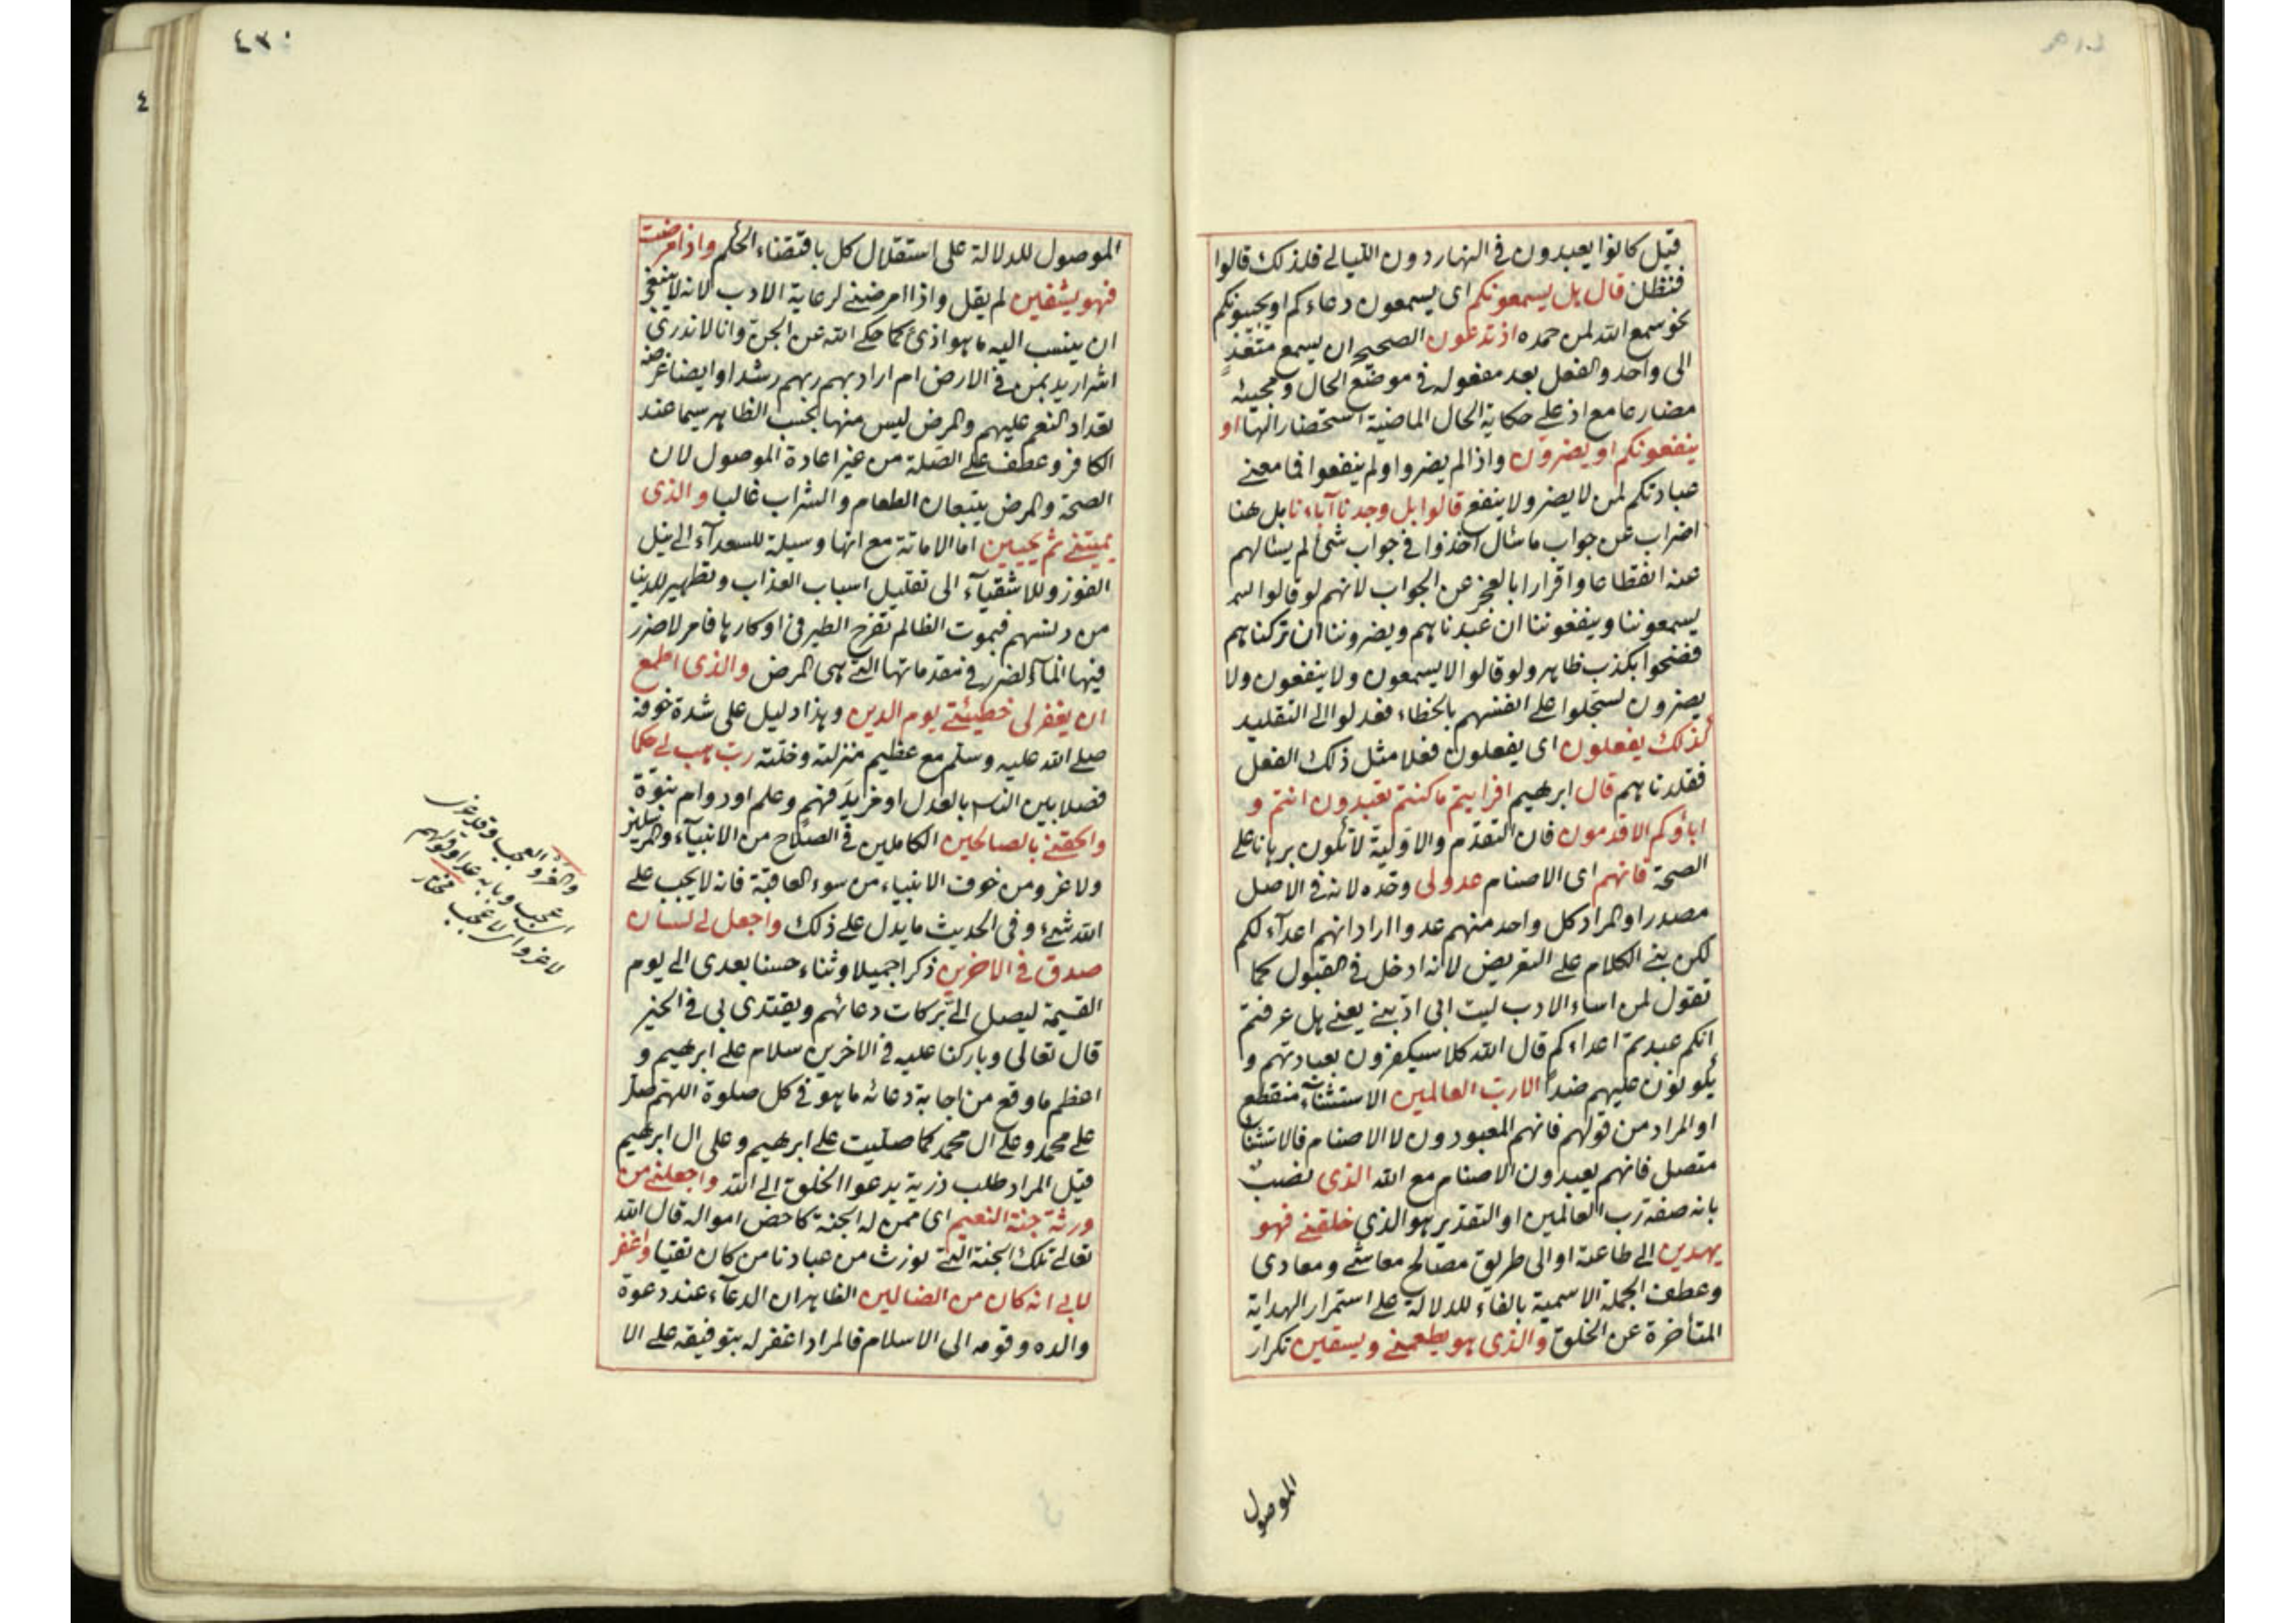 قيل كانوا يعبدون فى النهار دون الليالى فلذلك قالوا
فنظل قال هل يسمعونكم اى يسمعون دعاءكم او يجيبونكم
نحو سمع الله لمن حمده اذ تدعون الصحيح ان يسمع متعد
الى واحد والفعل بعد مفعوله فى موضع الحال ومجيئه
مضارعا مع اذ على حكاية الحال الماضية استحضارا لها او
ينفعونكم او يضرون واذا لم يضروا ولم ينفعوا فما معنى
عبادتكم لمن لا يضر ولا ينفع قالوا بل وجدنا آباءنا بل هنا
اضراب عن جواب ما سئال اخذوا فى جواب شئ لم يسئالهم
عنه انقطاعا واقرارا بالعجز عن الجواب لانهم لو قالوا
يسمعوننا وينفعوننا ان عبدناهم ويضروننا ان تركناهم
فضحوا بكذب ظاهر ولو قالوا لا يسمعون ولا ينفعون ولا
يضرون لسجلوا على انفسهم بالخطاء فعدلوا الى التقليد
كذلك يفعلون اى يفعلون فعلا مثل ذلك الفعل
فقلدناهم قال ابرهيم افرايتم ما كنتم تعبدون انتم و
اباؤكم الاقدمون فان التقدم والاولية لا تكون برهانا على
الصحة فانهم اى الاصنام عدو لى وحده لانه فى الاصل
مصدر او المراد كل واحد منهم عدو اراد انهم اعدآء لكم
لكن بنى الكلام على التعريض لانه ادخل فى القبول كما
تقول لمن اساء الادب ليت ابى ادبنى يعنى هل عرفتم
انكم عبدتم اعداءكم قال الله كلا سيكفرون بعبادتهم و
يكونون عليهم ضدا الا رب العالمين الاستثنآء منقطع
او المراد من قولهم فانهم المعبودون لا الاصنام فالاستثناء
متصل فانهم يعبدون الاصنام مع الله الذى نصب
بانه صفة رب العالمين او التقدير هو الذى خلقنى فهو
يهدين الى طاعته او الى طريق مصالح معاشى ومعادى
وعطف الجملة الاسمية بالفاء للدلالة على استمرار الهداية
المتأخرة عن الخلق والذى هو يطعمنى ويسقين تكرار
الموصول
٤٣٠
٤
الموصول للدلالة على استقلال كل باقتضاء الحكم واذا مرضت
فهو يشفين لم يقل واذا امرضنى لرعاية الادب لانه لا ينبغى
ان ينسب اليه ما هو اذى كما حكى الله عن الجن وانا لا ندرى
اشر اريد بمن فى الارض ام اراد بهم ربهم رشدا وايضا غرضه
تعداد النعم عليهم والمرض ليس منها بحسب الظاهر سيما عند
الكافر وعطف على الصلة من غير اعادة الموصول لان
الصحة والمرض يتبعان الطعام والشراب غالبا والذى
يميتنى ثم يحيين اما الاماتة مع انها وسيلة للسعدآء الى نيل
الفوز وللاشقيآء الى تقليل اسباب العذاب وتطهير للدنيا
من دنسهم فبموت الظالم تفرح الطير فى اوكارها فامر لا ضرر
فيها انمآ الضرر فى مقدماتها التى هى المرض والذى اطمع
ان يغفر لى خطيئتى يوم الدين وهذا دليل على شدة خوفه
صلى الله عليه وسلم مع عظيم منزلته وخلته رب هب لى حكما
فصلا بين الناس بالعدل او مزيد فهم وعلم او دوام نبوة
والحقنى بالصالحين الكاملين فى الصلاح من الانبيآء والمرسلين
ولا غرو من خوف الانبياء من سوء العاقبة فانه لا يجب على
الله شئ وفى الحديث ما يدل على ذلك واجعل لى لسان
صدق فى الاخرين ذكرا جميلا وثناء حسنا بعدى الى يوم
القيمة ليصل الى بركات دعائهم ويقتدى بى فى الخير
قال تعالى وباركنا عليه فى الاخرين سلام على ابرهيم و
اعظم ما وقع من اجابة دعائه ما هو فى كل صلوة اللهم صل
على محمد وعلى ال محمد كما صليت على ابرهيم وعلى ال ابرهيم
قيل المراد طلب ذرية يدعوا الخلق الى الله واجعلنى من
ورثة جنة النعيم اى ممن له الجنة كاخص امواله قال الله
تعالى تلك الجنة التى نورث من عبادنا من كان تقيا واغفر
لابى انه كان من الضالين الظاهر ان الدعآء عند دعوة
والده وقومه الى الاسلام فالمراد اغفر له بتوفيقه على الا
والغرو العجب وقد غرى
اى عجب وبابه عدا وقولهم
لا غرو اى لا عجب مختار